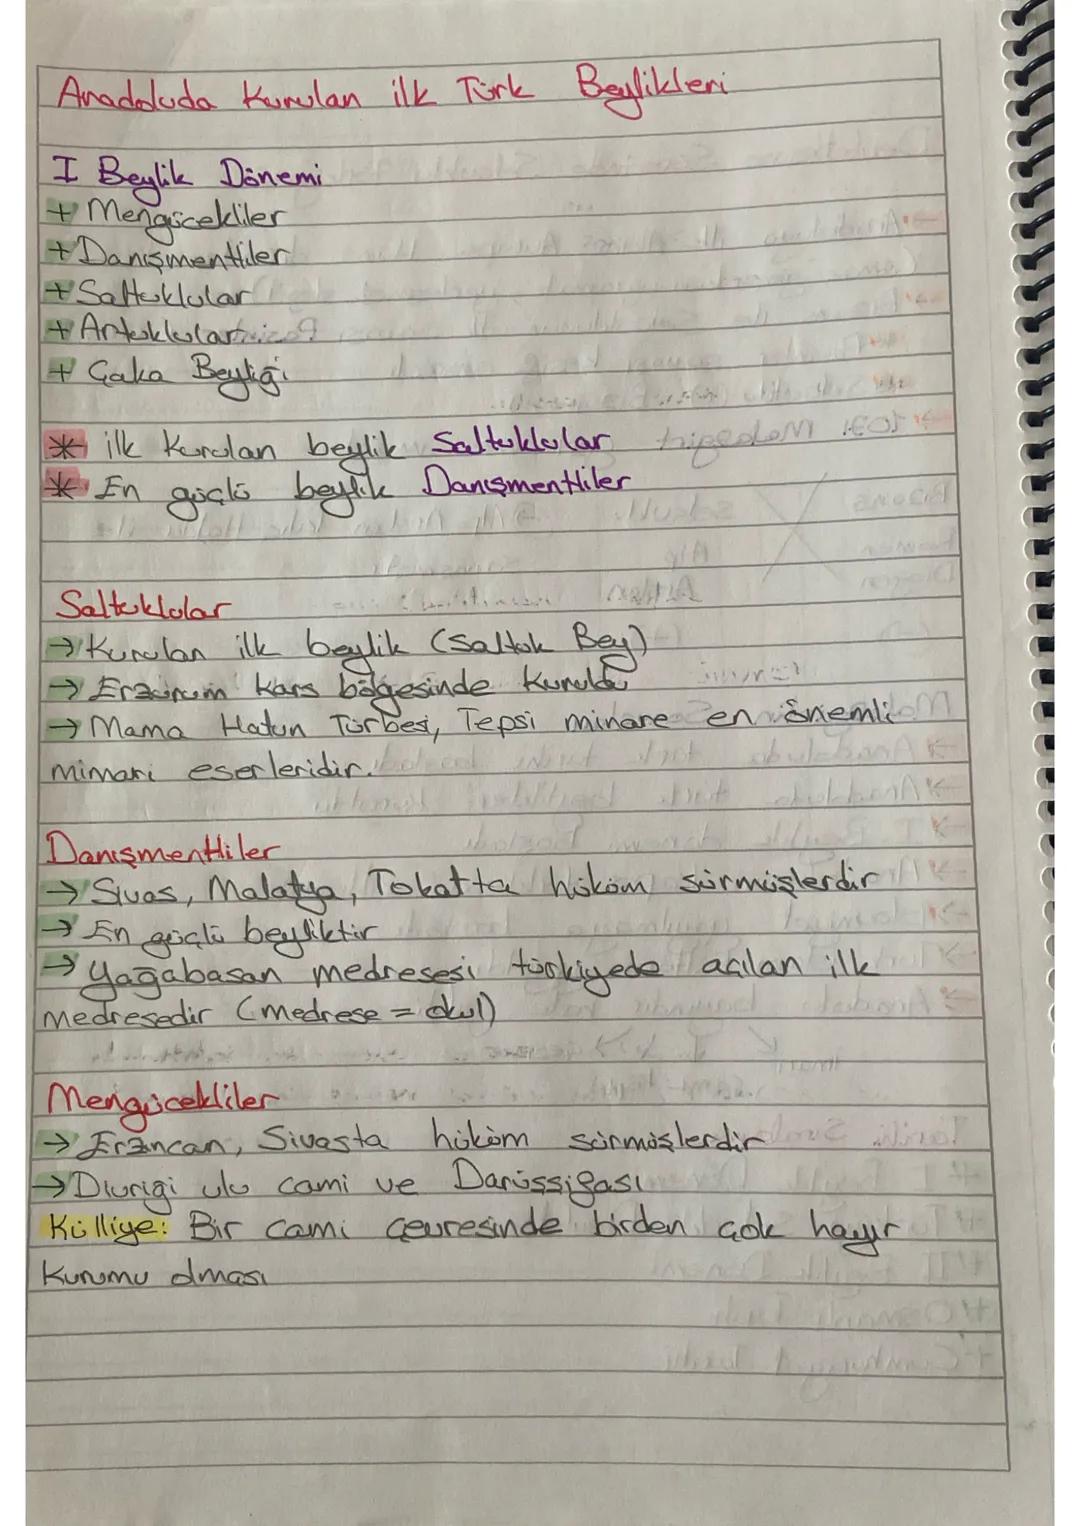 Anadoluda Kurulan ilk Türk Beylikleri
I Beylik Dönemi
+ Mengücekliler
+ Danışmentliler
+ Saltuklular
+ Artuklular
+ Çaka Beyliği
* ilk Kurulan beylik Saltuklular
* En güçlü beylik Danışmentliler
Saltuklular
→ Kurulan ilk beylik (Saltuk Bey)
→ Erzurum Kars bölgesinde Kuruldu
→ Mama Hatun Türbesi, Tepsi minare en önemli
mimari eserleridir.
Danışmentliler
→ Sivas, Malatya, Tokatta hüküm sürmüşlerdir
→ En güçlü beyliktir
→ Yağabasan medresesi türkiyede açılan ilk
medresedir (medrese = okul)
Mengücekliler
→ Erzincan, Sivasta hüküm sürmüşlerdir
→ Divrigi ulu cami ve Darüssifası
Külliye: Bir cami çevresinde birden çok hayır
Kurumu olması